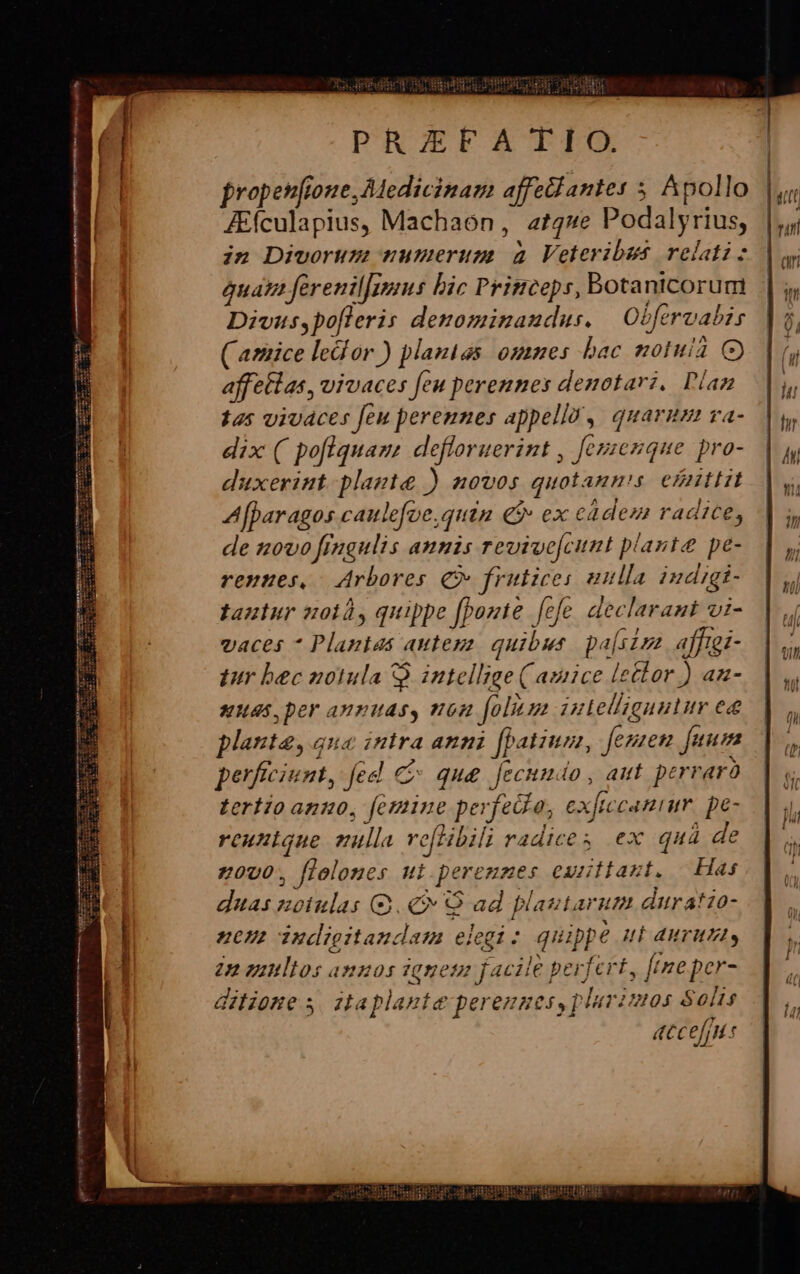 PRÆFATIO.
propenſione, Medicinam affectantes ; Apollo
Æſculapius, Machaon, atque Podalyrius,
in Divorum numerum à Veteribus relati :
quàm ſereniſſimus hic Princeps, Botanicorum
Divus, poſteris denominandus. Obſervabis
( amice lector ) plantas omnes hac notulâ ☉
affectas, vivaces ſeu perennes denotari. Plan
tas vivaces ſeu perennes appello, quarum ra-
dix ( poſtquam defloruerint, ſemenque pro-
duxerint plantæ ) novos quotannis emittit
Aſparagos cauleſve, quin & ex eâdem radice,
de novo ſingulis annis reviveſcunt plantæ pe-
rennes. Arbores & frutices nulla indigi-
tantur notâ, quippe ſponte ſeſe declarant vi-
vaces : Plantas autem quibus paſsim affigi-
tur hæc notula ♀ intellige ( amice lector ) an-
nuas, per annuas, non ſolùm intelliguntur eæ
plantæ, quæ intra anni ſpatium, ſemen ſuum
perficiunt, ſed & quæ ſecundo, aut perrarò
tertio anno, ſemine perfecto, exſiccantur pe-
reuntque nulla reſtibili radice; ex quâ de
novo, ſtolones ut perennes emittant. Has
duas notulas ☉. & ♀ ad plantarum duratio-
nem indigitandam elegi : quippe ut aurum,
in multos annos ignem facilè perfert, ſine per-
ditione ; ita plantæ perennes, plurimos Solis
acceſſus